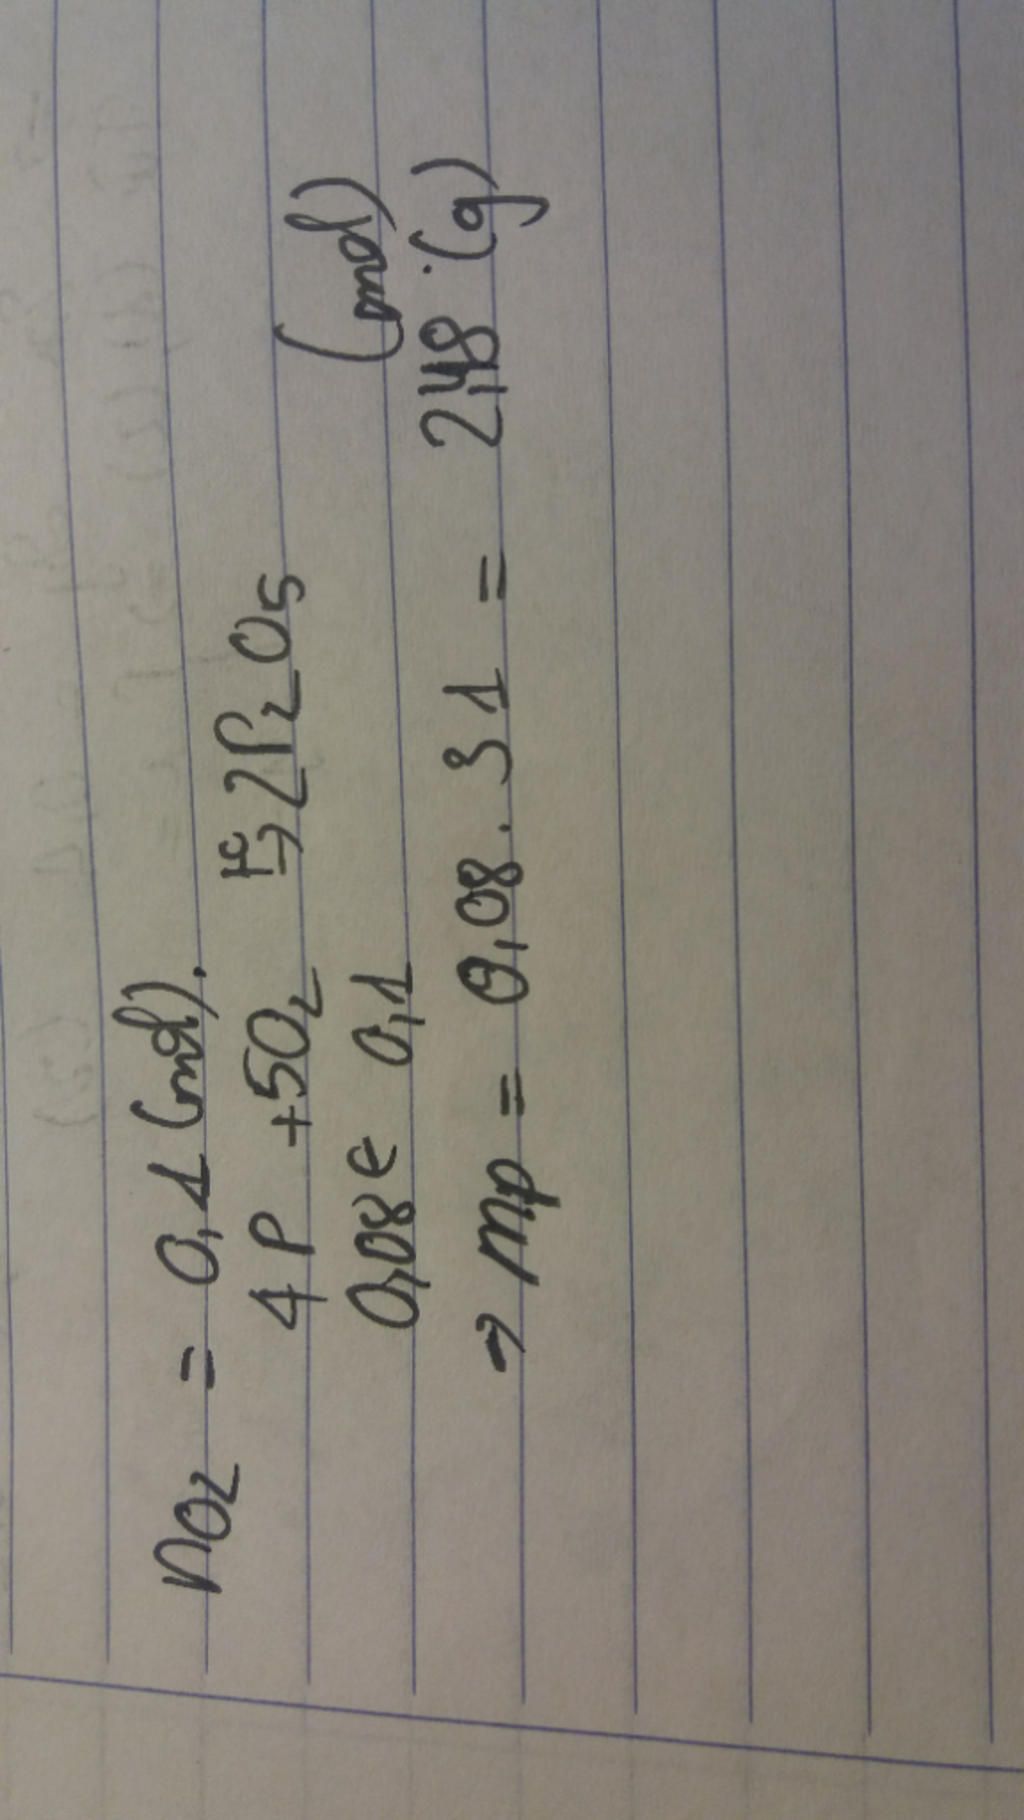 nO2 = 0,1 (mol).
4P + 5O2 t°→ 2P2O5
0,08 ← 0,1 (mol)
→ mp = 0,08 . 31 = 2,48 (g)